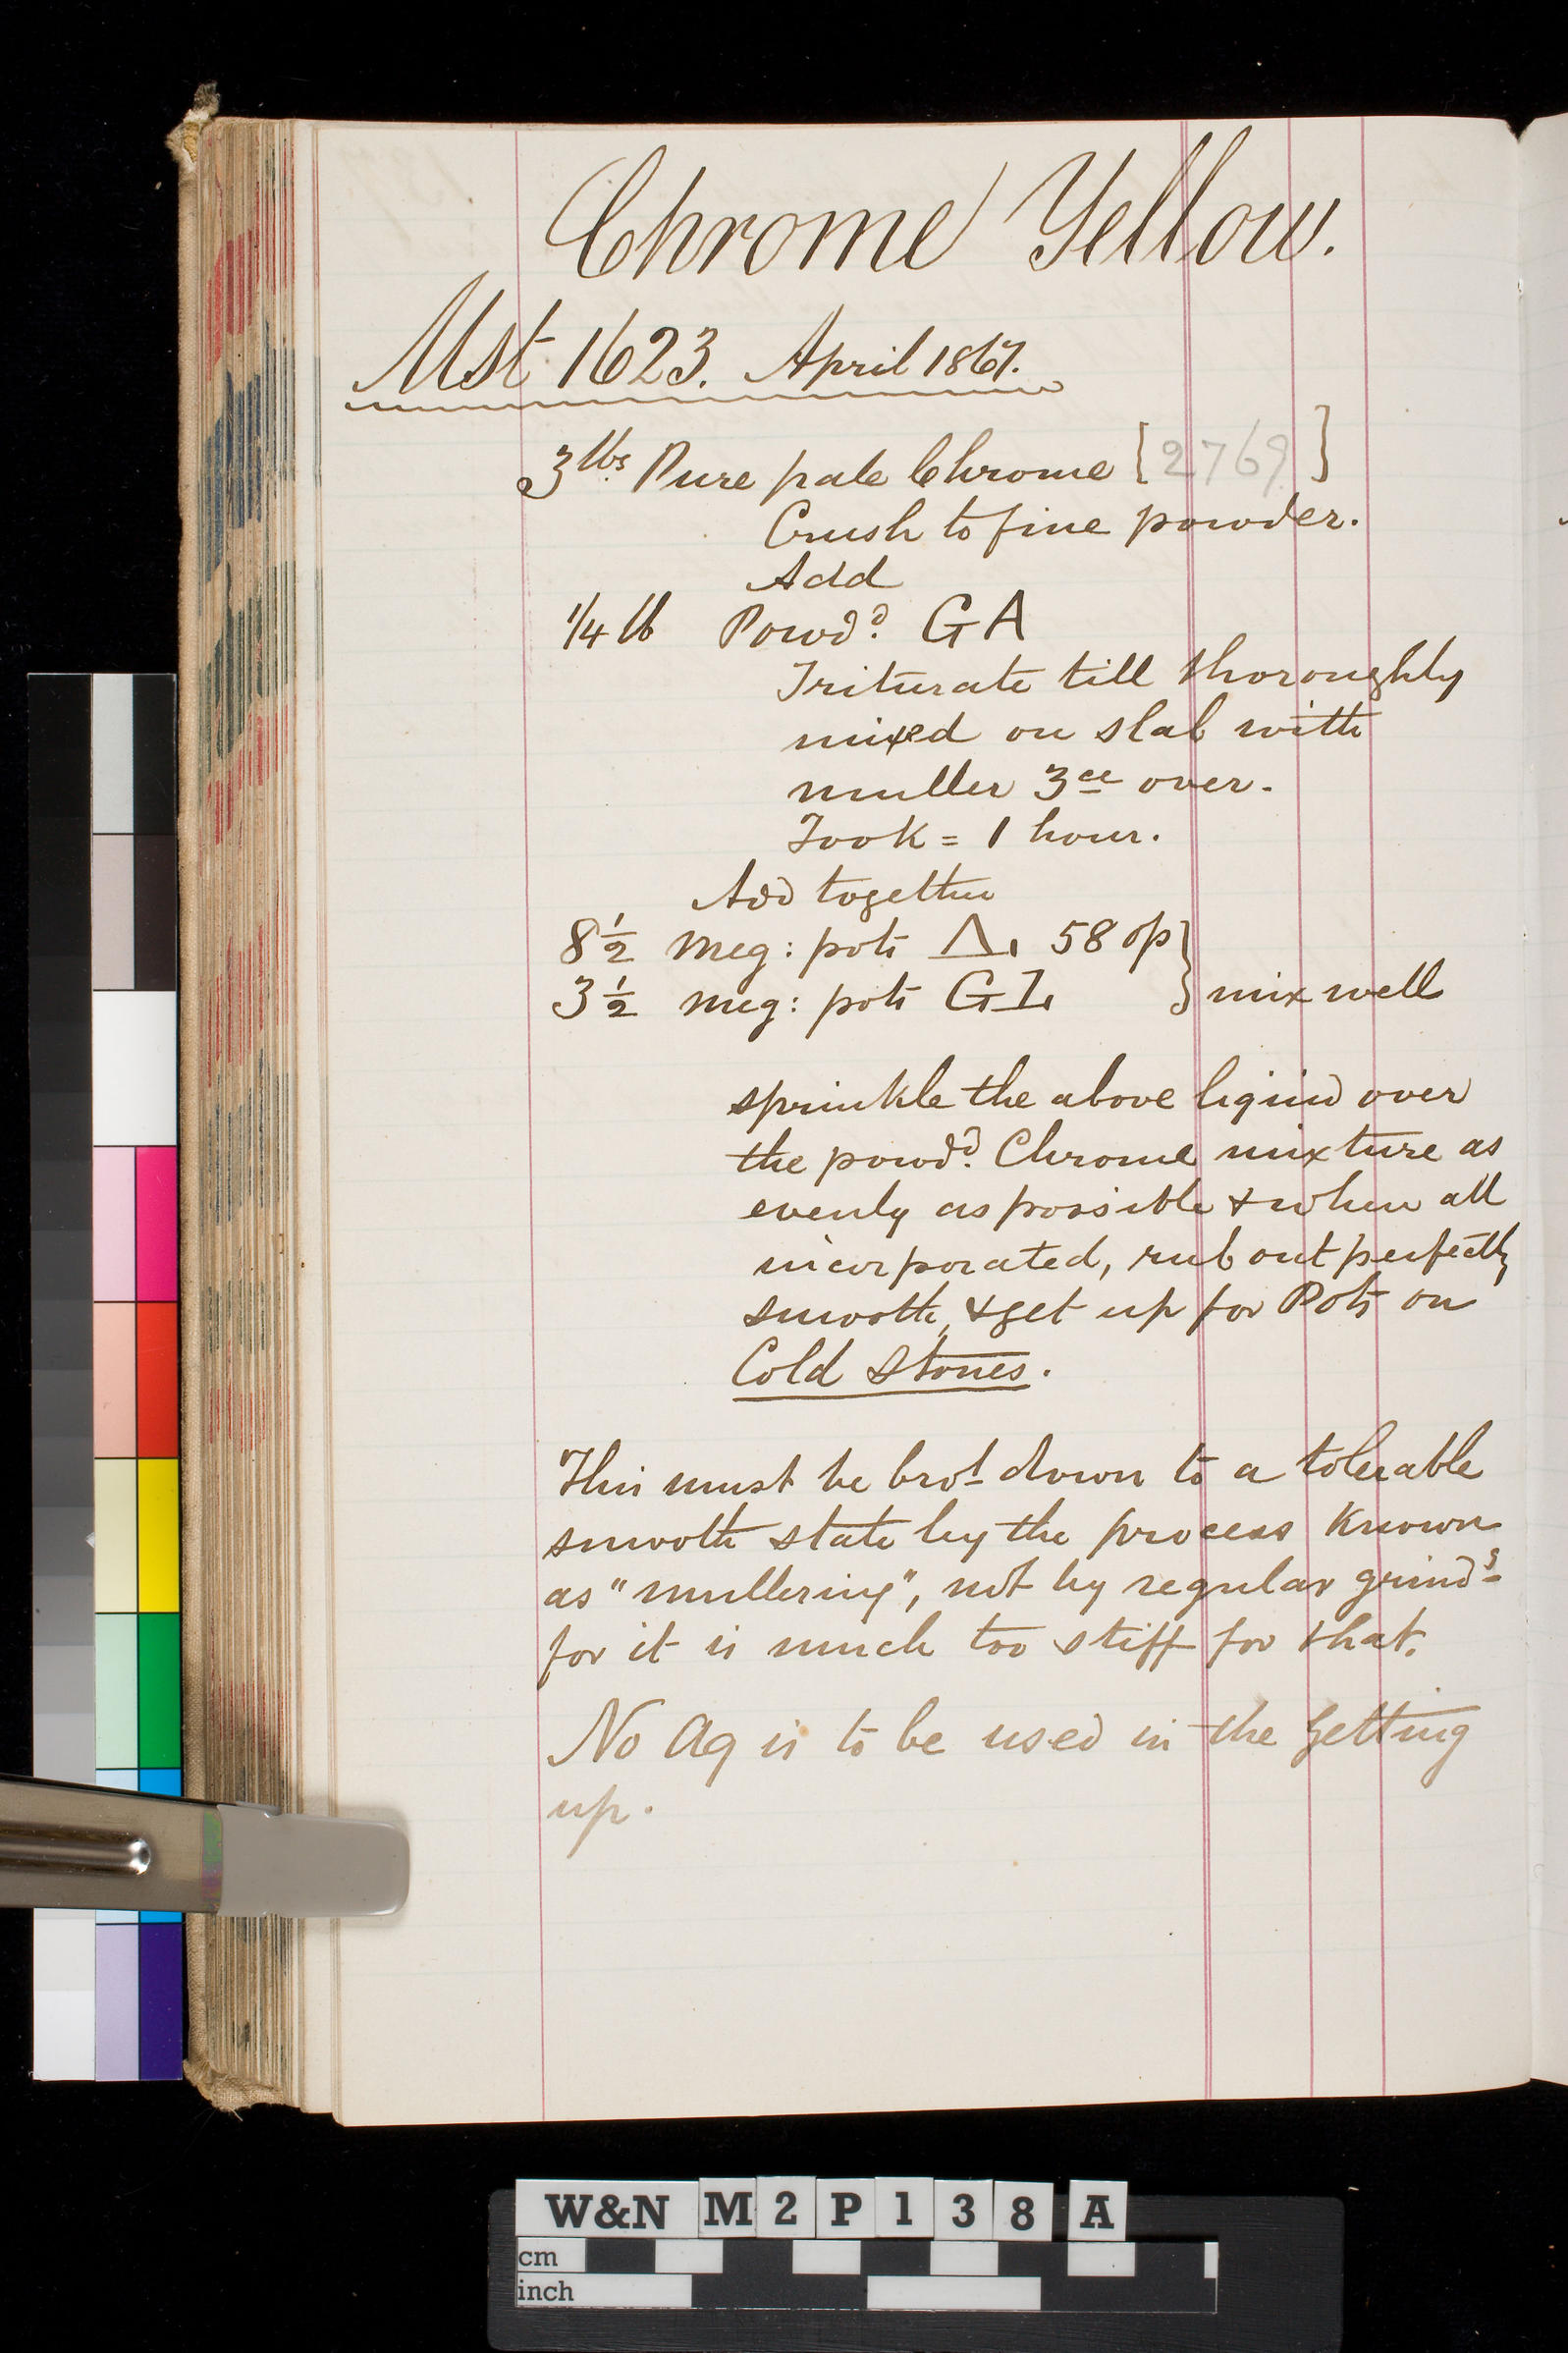 Chrome Yellow.
Mst 1623. April 1867.
3 lbs. Pure pale Chrome [2769]
Crush to fine powder.
Add
1/4 lb Powd.d GA
Triturate till thoroughly
mixed on slab with
muller 3ce over.
Took = 1 hour.
Add together
8 1/2 Meg: pots Δ. 58 op
3 1/2 Meg: pots } mix well
sprinkle the above liquid over
the powd.d Chrome mixture as
evenly as possible & when all
incorporated, rub out perfectly
smooth, & get up for Pots on
Cold Stones.
This must be brot down to a tolerable
smooth state by the process Known
as "mullering", not by regular grindg
for it is much too stiff for that.
No Aq is to be used in the getting
up.
W&N M2P138A
cm
inch